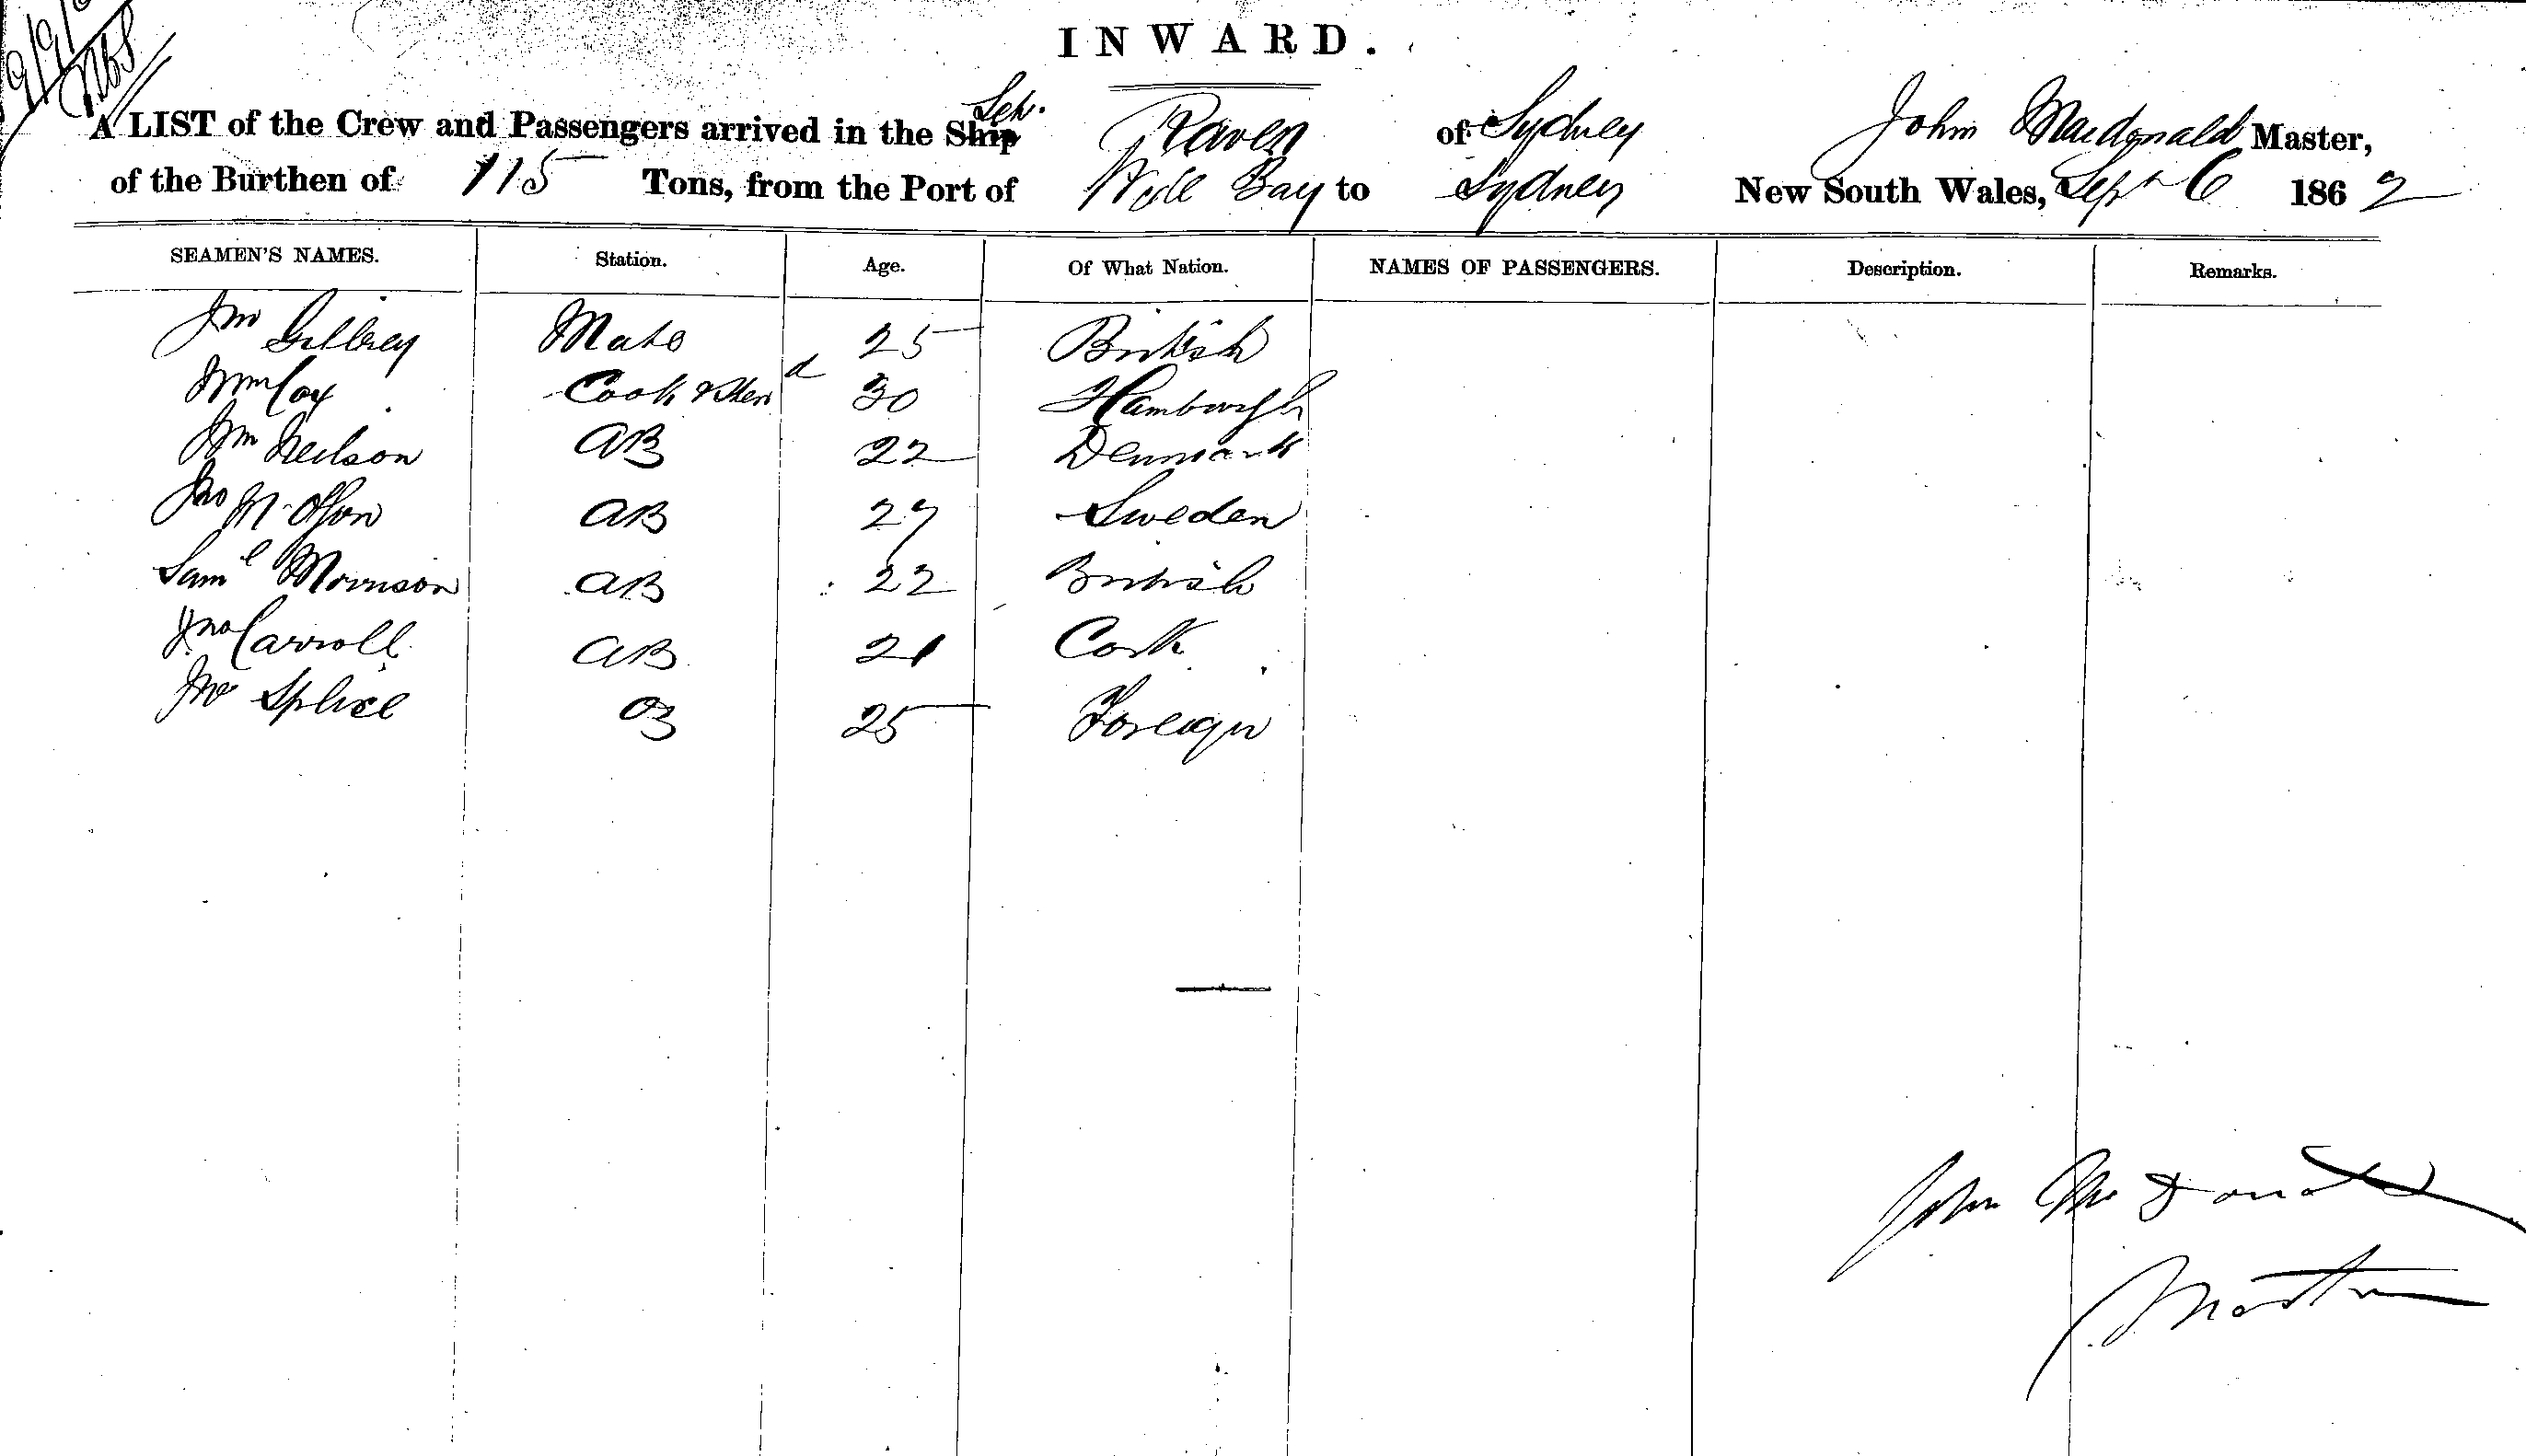 INWARD.
A LIST of the Crew and Passengers arrived in the Ship Sch. Raven of Sydney John Macdonald Master,
of the Burthen of 115 Tons, from the Port of Wide Bay to Sydney New South Wales, Sept 6 1862
SEAMEN'S NAMES. Station. Age. Of What Nation. NAMES OF PASSENGERS. Description. Remarks.
Mate 25 British
Wm Cox Cook & Stewd 30 Hamburgh
Wm Neilson AB 22 Denmark
Jno N. Olson AB 27 Sweden
Saml Morrison AB 22 British
Jno Carroll AB 21 Cork
Jno Splice OS 25 Foreign
John McDonald
Master